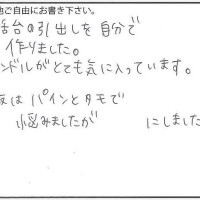 他ご自由にお書き下さい。
話台の引出しを自分で
作りました。
ンドルがとても気に入っています。
はパインとタモで
悩みましたが にしました